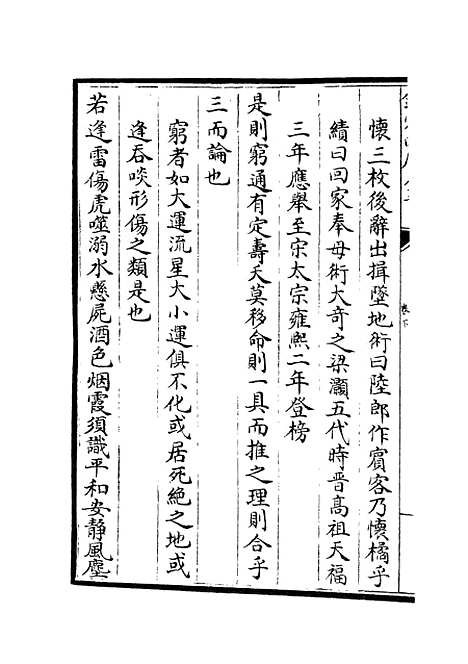 懷三枚後辭出揖墜地術曰陸郎作賓客乃懷橘乎
績曰回家奉母術大奇之梁灝五代時晉高祖天福
三年應舉至宋太宗雍熙二年登榜
是則窮通有定壽夭莫移命則一具而推之理則合乎
三而論也
窮者如大運流星大小運俱不化或居死絶之地或
逢吞啖形傷之類是也
若逢雷傷虎噬溺水懸屍酒色烟霞須識平和安静風塵